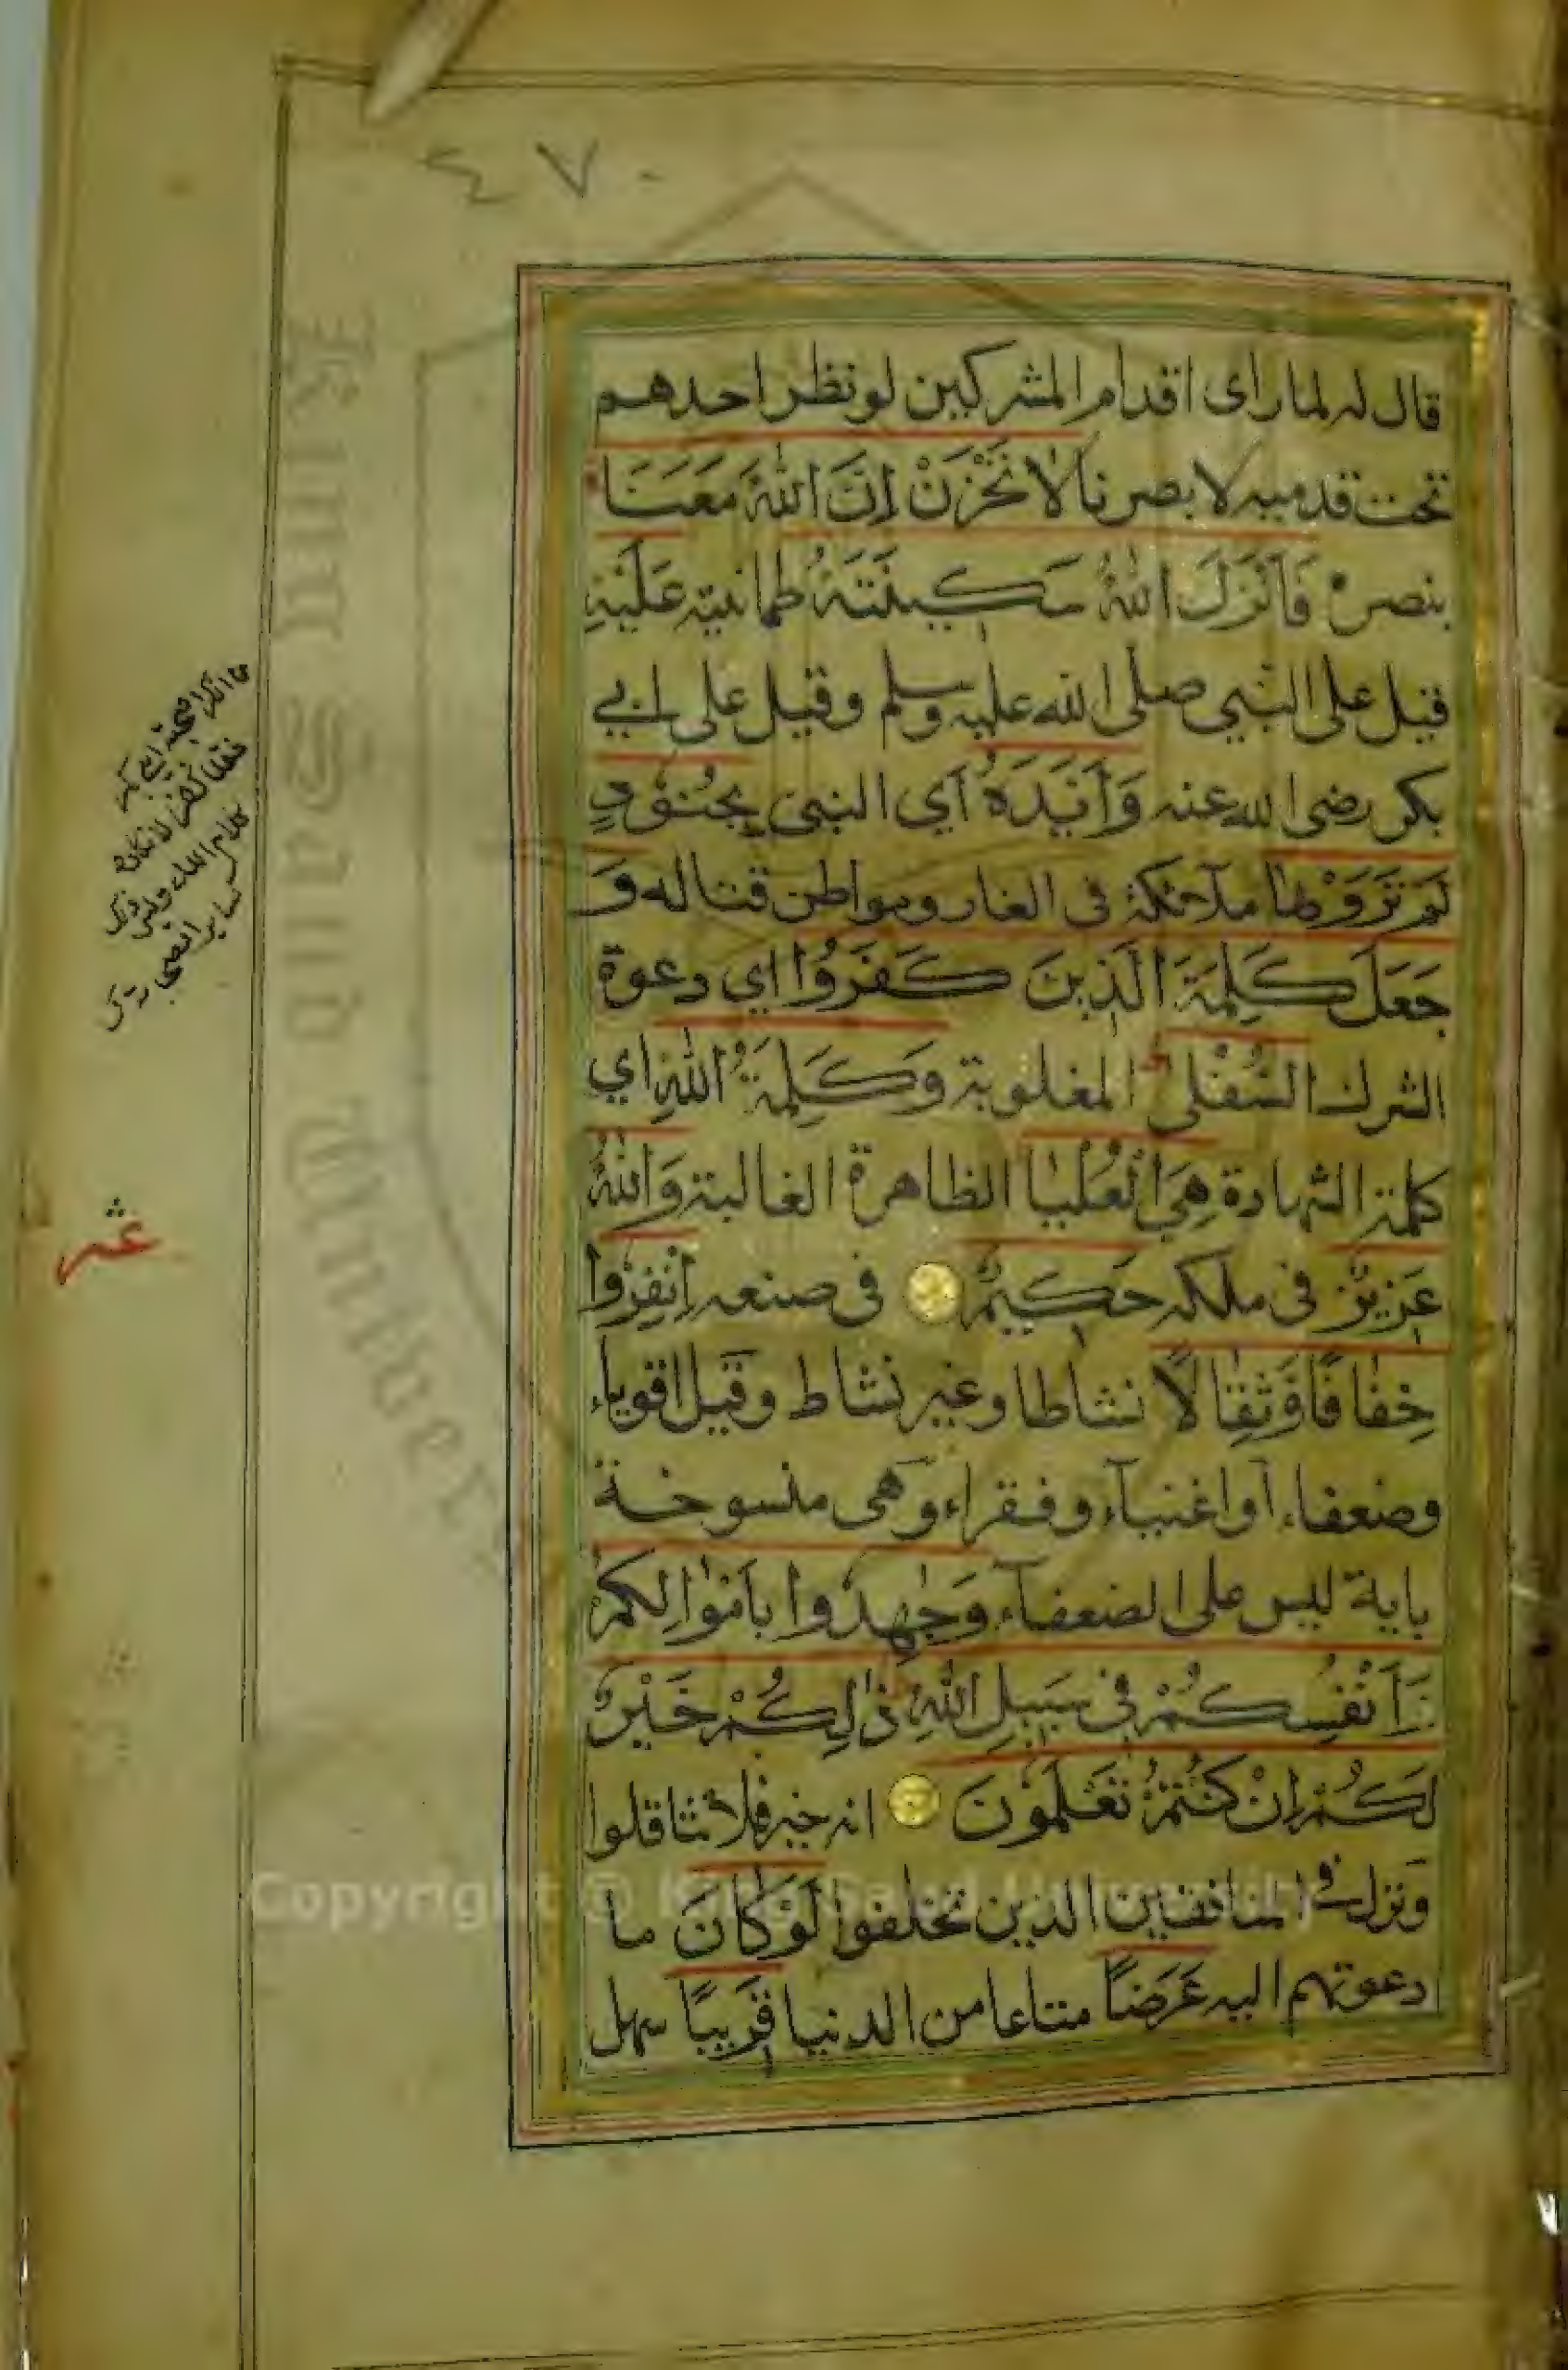 ٤٧٠
قال له لما راى اقدام المشركين لو نظر احدهم
تحت قدميه لابصرنا لَا تَحْزَنْ إِنَّ اللّٰهَ مَعَنَا
بنصره فَأَنْزَلَ اللّٰهُ سَكِينَتَهُ طمانينته عَلَيْهِ
قيل على النبي صلى الله عليه وسلم وقيل على ابي
بكر رضى الله عنه وَأَيَّدَهُ أي النبى بِجُنُودٍ
لَمْ تَرَوْهَا ملآئكة فى الغار ومواطن قتاله وَ
جَعَلَ كَلِمَةَ الَّذِينَ كَفَرُوا اي دعوة
الشرك السُّفْلٰى المغلوبة وَكَلِمَةُ اللّٰهِ اي
كلمة الشهادة هِيَ الْعُلْيَا الظاهرة الغالبة وَاللّٰهُ
عَزِيزٌ فى ملكه حَكِيمٌ فى صنعه اِنْفِرُوا
خِفَافًا وَثِقَالًا نشاطا وغير نشاط وقيل اقوياء
وضعفاء أو اغنيآء وفقراء وهى منسوخة
باية ليس على الضعفآء وَجٰهِدُوا بِأَمْوَالِكُمْ
وَأَنْفُسِكُمْ فِي سَبِيلِ اللّٰهِ ذٰلِكُمْ خَيْرٌ
لَكُمْ إِنْ كُنْتُمْ تَعْلَمُونَ انه خير فلا تثاقلوا
ونزل فى المنافقين الذين تخلفوا لَوْ كَانَ ما
دعوتهم اليه عَرَضًا متاعا من الدنيا قَرِيبًا سهل
من انكر صحبة ابي بكر
فقد كفر لانكاره
كلام الله وليس ذلك
لسائر الصحابة
عشر
King Saud Univer
Copyright © King Saud University